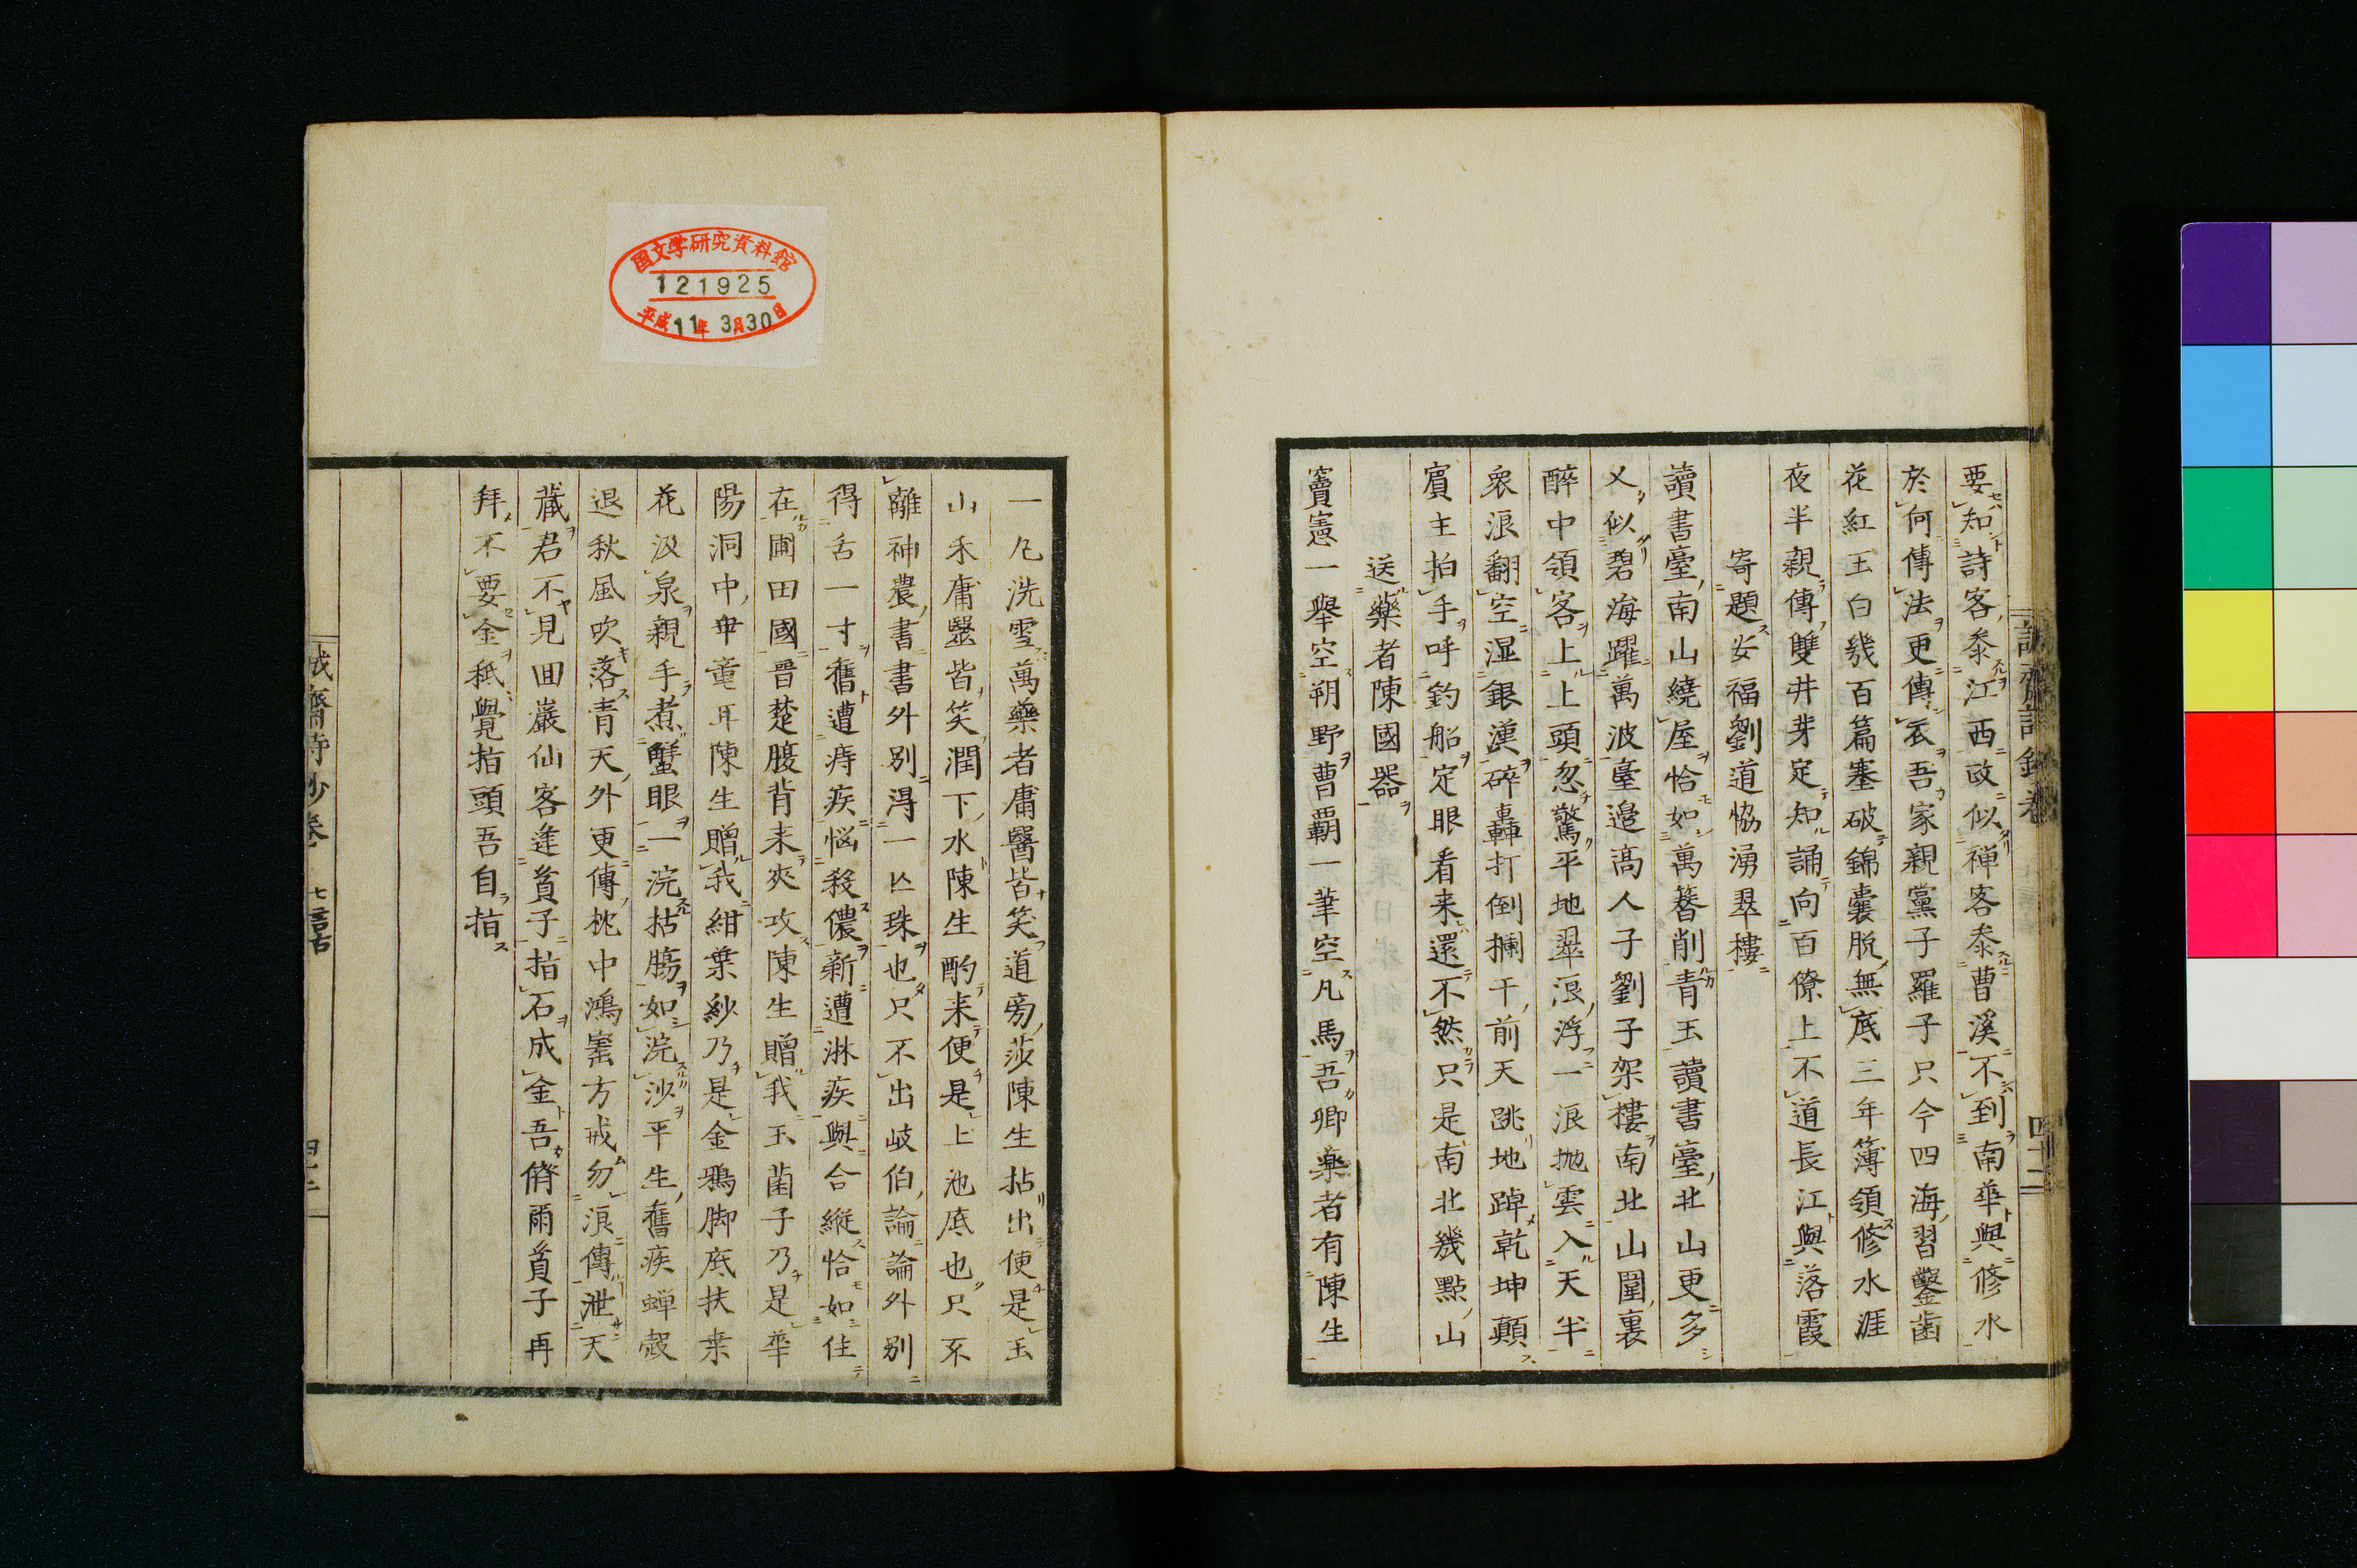 要知詩客參江西政似禅客參曹溪不到南華與修水
於何傳法更傳衣吾家親黨子羅子只今四海習鑿齒
花紅玉白幾百篇塞破錦囊脫無底三年簿領修水涯
夜半親傳雙井芽定知誦向百僚上不道長江與落霞
寄題安福劉道協湧翠樓
讀書臺南山繞屋恰如萬簪削青玉讀書臺北山更多
又似碧海躍萬波臺邉高人子劉子架樓南北山圍裏
醉中領客上上頭忽驚平地翠浪浮一浪抛雲入天半
衆浪翻空湿銀漢碎轟打倒欄干前天跳地踔乾坤顛
賔主拍手呼釣船定眼看来還不然只是南北幾點山
送藥者陳國器
竇憲一舉空朔野曹覇一筆空凡馬吾卿薬者有陳生
一凡洗雪萬藥者庸醫皆笑道旁莎陳生拈出便是玉
山禾庸毉皆笑澗下水陳生酌来便是上池底也只不
離神農書書外別淂一匕珠也只不出岐伯論論外别
得舌一寸舊遭痔疾悩殺儂新遭淋疾與合縦恰如住
在圃田國晋楚腹背来夾攻陳生贈我玉菌子乃是華
陽洞中毌童耳陳生贈我紺葉紗乃是金鴉脚底扶桒
花汲泉親手煮蟹眼一浣枯腸如浣沙平生舊疾蟬殻
退秋風吹落青天外更傳枕中鴻寳方戒勿浪傳泄天
藏君不見囬巖仙客逢貧子指石成金吾脩兩貧子再
拜不要金秖覺指頭吾自指
誠齋詩鈔卷
四十二
誠齋詩鈔卷
七言古
国文学研究資料館
121925
平成11年3月30日